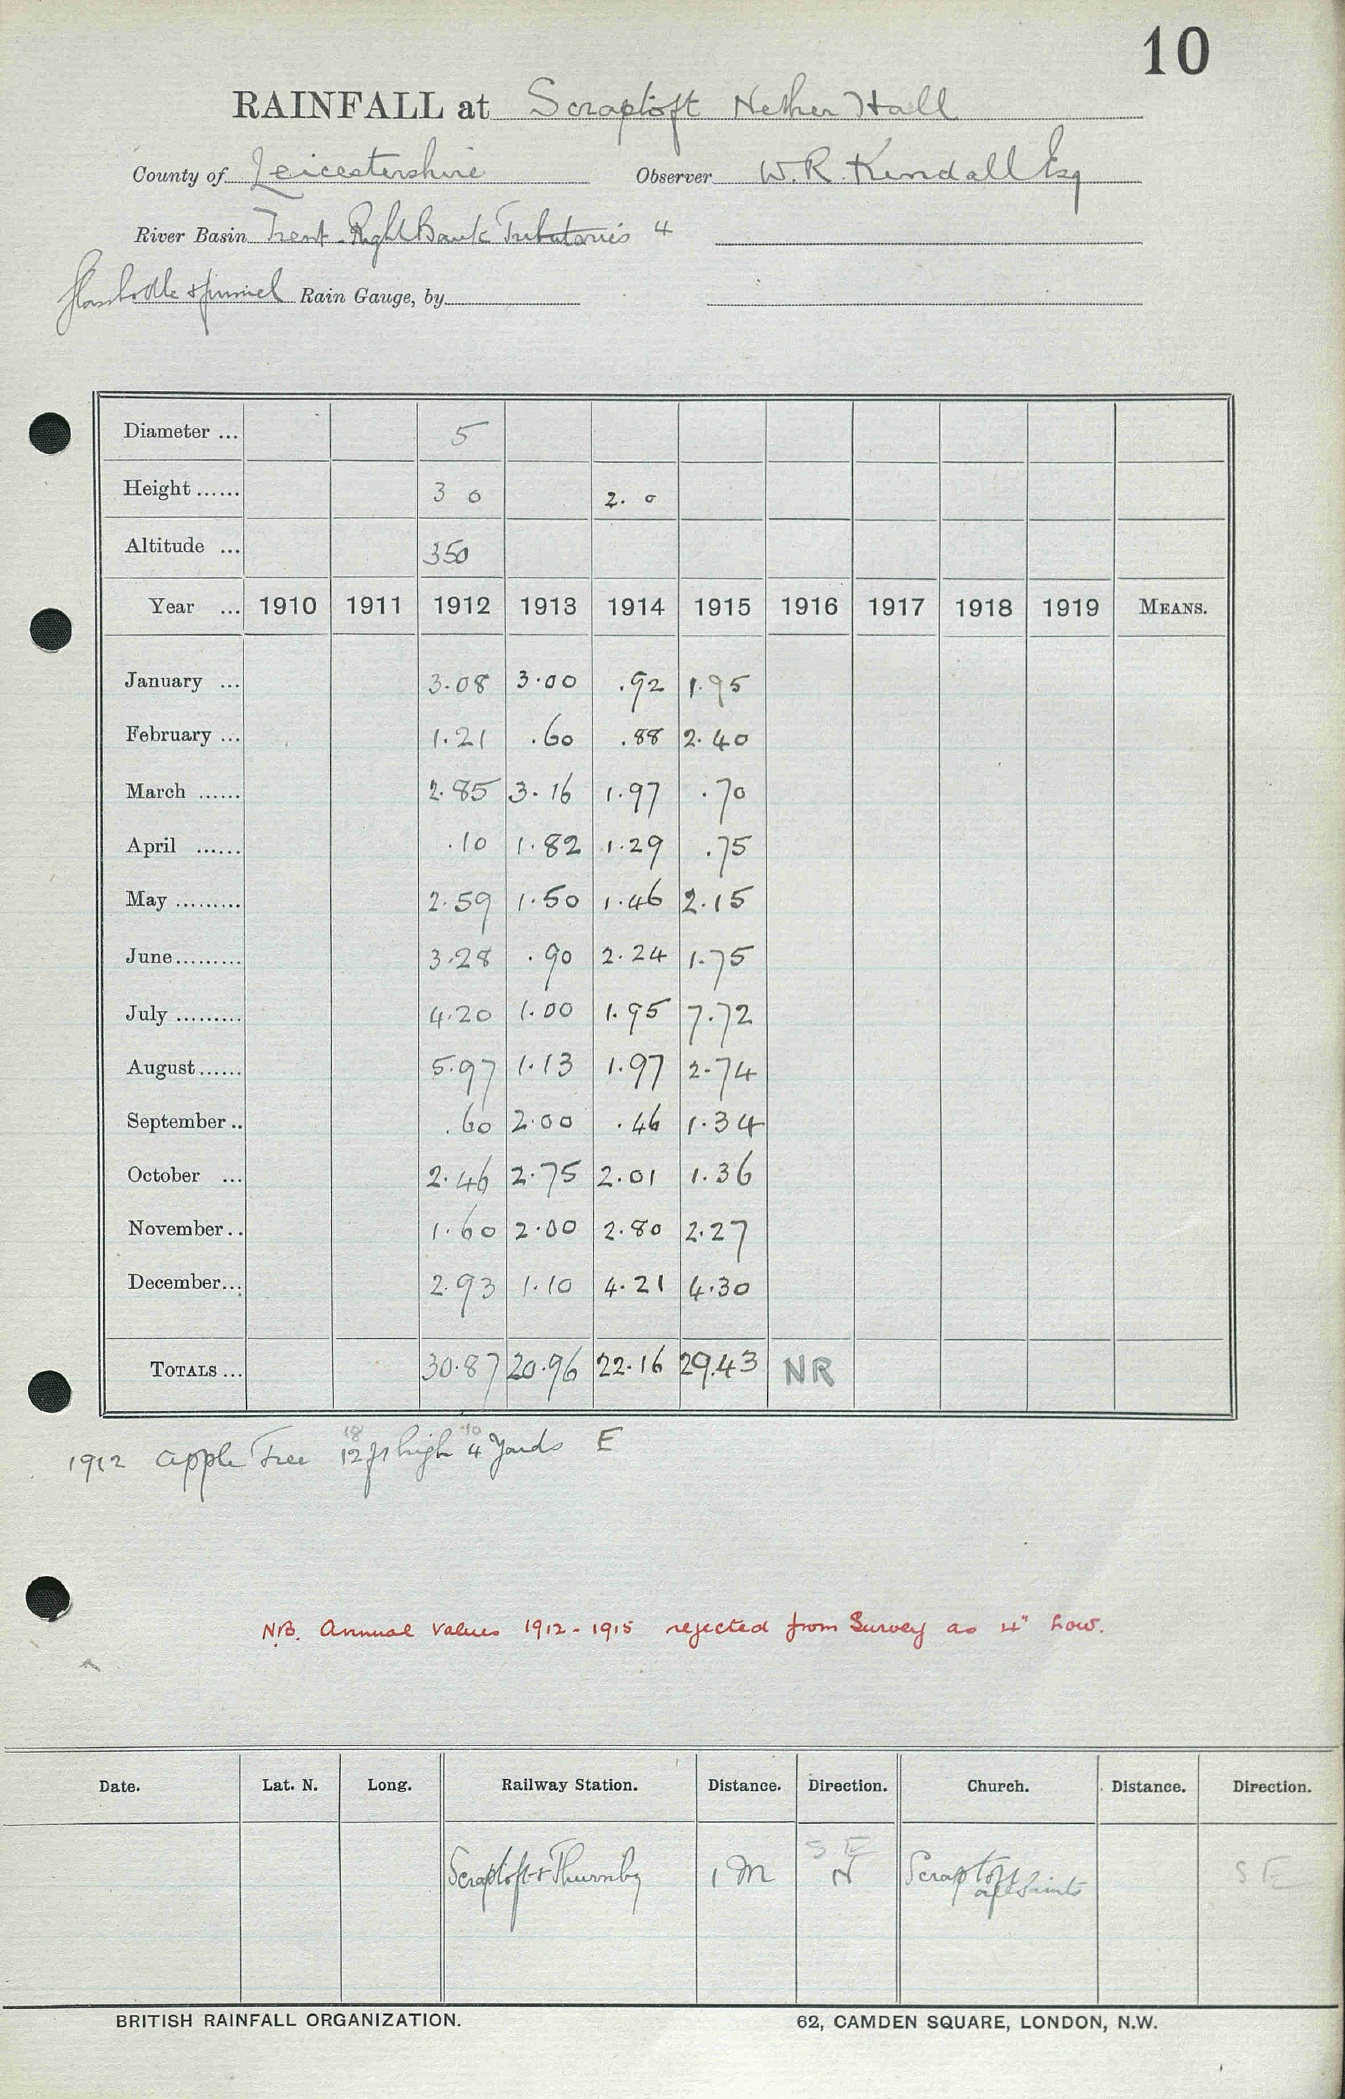 10
RAINFALL at Scraptoft Nether Hall
County of Leicestershire Observer W. R. Kendall Esq
River Basin Trent - Right Bank Tributaries 4
Glass bottle & funnel Rain Gauge, by
Diameter ... 5
Height ...... 3 0 2. 0
Altitude ... 350
Year ... 1910 1911 1912 1913 1914 1915 1916 1917 1918 1919 MEANS.
January ... 3.08 3.00 .92 1.95
February ... 1.21 .60 .88 2.40
March ...... 2.85 3.16 1.97 .70
April ...... .10 1.82 1.29 .75
May ......... 2.59 1.50 1.46 2.15
June ......... 3.28 .90 2.24 1.75
July ......... 4.20 1.00 1.95 7.72
August ...... 5.97 1.13 1.97 2.74
September .. .60 2.00 .46 1.34
October ... 2.46 2.75 2.01 1.36
November .. 1.60 2.00 2.80 2.27
December ... 2.93 1.10 4.21 4.30
TOTALS ... 30.87 20.96 22.16 29.43 NR
18 10
1912 Apple Tree 12 ft high 4 Yards E
N.B. Annual Values 1912-1915 rejected from Survey as 4" low.
Date. Lat. N. Long. Railway Station. Distance. Direction. Church. Distance. Direction.
S E
Scraptoft & Thurnby 1 M N Scraptoft S E
All Saints
BRITISH RAINFALL ORGANIZATION. 62, CAMDEN SQUARE, LONDON, N.W.